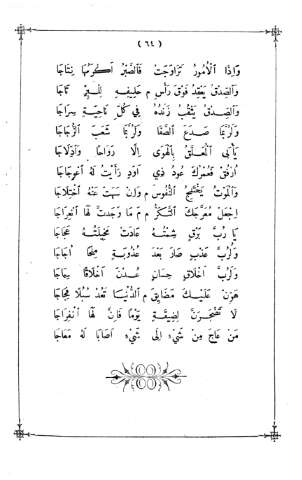 ( ٦٤ )
وَإِذَا الْأُمُورُ تَزَاوَجَتْ فَالصَّبْرُ أَكْرَمُهَا نِتَاجَا
وَالصِّدْقُ يَعْقِدُ فَوْقَ رَأْسِ م حَلِيفِهِ لِلْبِرِّ تَاجَا
وَالصِّدْقُ يَثْقُبُ زَنْدُهُ فِي كُلِّ نَاحِيَةٍ سِرَاجَا
وَلَرُبَّمَا صَدَعَ الصَّفَا وَلَرُبَّمَا شَعَبَ الزُّجَاجَا
يَأْبَى الْمُعَلَّقُ بِالْهَوَى إِلَّا رَوَاحًا وَادِّلَاجَا
أُرْفُقْ فَعُمْرُكَ عُودُ ذِي أَوَدٍ رَأَيْتُ لَهُ اعْوِجَاجَا
وَالْمَوْتُ يَخْتَلِجُ النُّفُوسَ م وَإِنْ سَهَتْ عَنْهُ اخْتِلَاجَا
إِجْعَلْ مُعَرَّجَكَ التَّكَرُّمَ م مَا وَجَدْتَ لَهَا انْعِرَاجَا
يَا رُبَّ بَرْقٍ شِمْتُهُ عَادَتْ مَخِيلَتُهُ عَجَاجَا
وَلَرُبَّ عَذْبٍ صَارَ بَعْدَ عُذُوبَةٍ مِلْحًا أُجَاجَا
وَلَرُبَّ أَخْلَاقٍ حِسَانٍ عُدْنَ أَخْلَاقًا سِمَاجَا
هَوِّنْ عَلَيْكَ مَضَايِقَ م الدُّنْيَا تَعُدْ سُبُلًا فِجَاجَا
لَا تَضْجَرَنَّ لِضِيقَةٍ يَوْمًا فَإِنَّ لَهَا انْفِرَاجَا
مَنْ عَاجَ مِنْ شَيْءٍ إِلَى شَيْءٍ أَصَابَ لَهُ مَعَاجَا